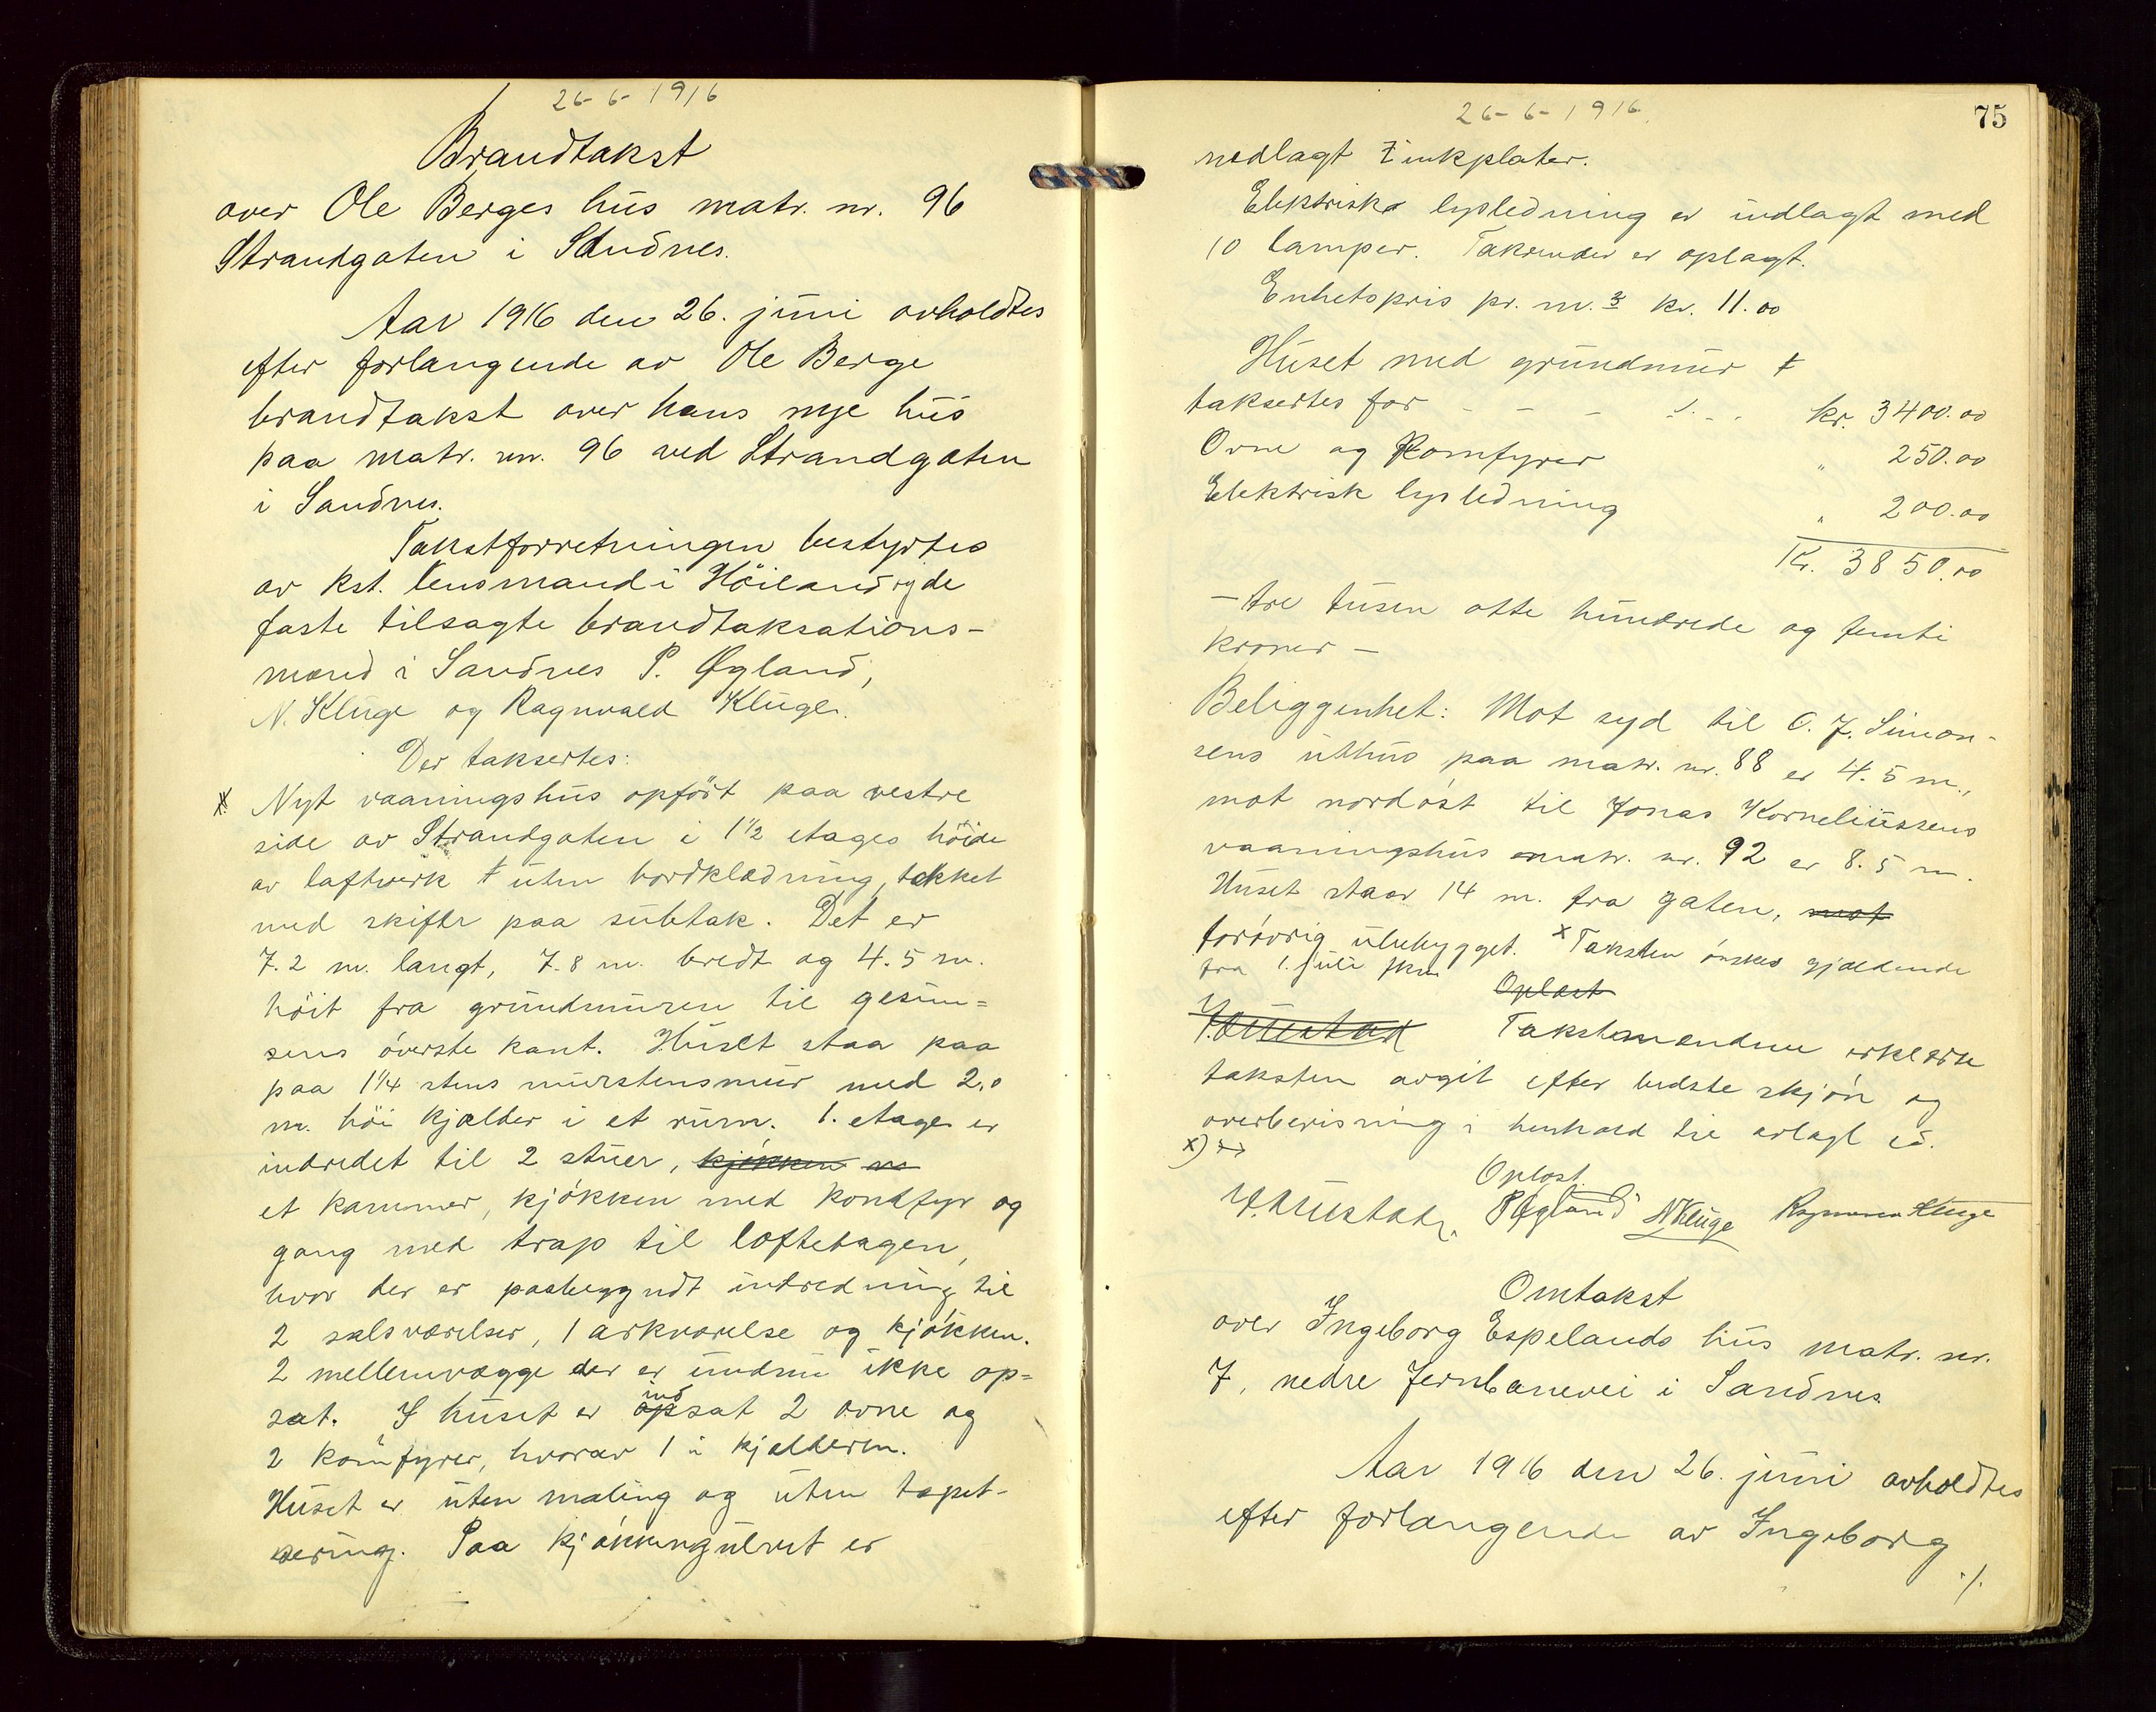 26-6-1916
Brandtakst
over Ole Berges hus matr. nr. 96
Strandgaten i Sandnes.
Aar 1916 den 26. juni avholdtes
efter forlangende av Ole Berge
brandtakst over hans nye hus
paa matr. nr. 96 ved Strandgaten
i Sandnes.
Takstforretningen bestyrtes
av kst. lensmand i Höiland og de
faste tilsagte brandtaksations-
mænd i Sandnes P. Øgland,
N. Kluge og Ragnvald Kluge.
Der taksertes:
Nyt vaaningshus opfört paa vestre
side av Strandgaten i 1½ etages höide
av laftverk uten bordklædning, tækket
med skifer paa subtak. Det er
7.2 m. langt, 7.8 m. bredt og 4.5 m.
höit fra grundmuren til gesim=
sens överste kant. Huset staa paa
paa 1¼ stens murstensmur med 2,0
m. höi kjælder i et rum. 1. etage er
indredet til 2 stuer, kjökken
et kammer, kjökken med komfyr og
gang med trap til loftetagen,
hvor der er paabegyndt indredning til
2 salsværelser, 1 arkværelse og kjökken.
2 mellemvægge der er endnu ikke op=
ind
sat. I huset er opsat 2 ovne og
2 komfyrer, hvorav 1 i kjælderen.
Huset er uten maling og uten tapet-
sering. Paa kjökkengulvet er
75
26-6-1916.
nedlagt Zinkplater.
Elektrisk lysledning er indlagt med
10 lamper. Takrender er oplagt.
Enhetspris pr. m.3 kr. 11.00
Huset med grundmur
taksertes for - - - kr. 3400.00
Ovne og Komfyrer " 250.00
Elektrisk lysledning " 200.00
Kr. 3850.00
- tre tusen otte hundrede og femti
kroner -
Beliggenhet: Mot syd til O. J. Simon-
sens uthus paa matr. nr. 88 er 4.5 m.,
mot nordöst til Jonas Korneliussens
vaaningshus matr. nr. 92 er 8.5 m.
Huset staar 14 m. fra gaten, mot
forövrig ubebygget. x Taksten önskes gjældende
fra 1. juli
Oplæst
Takstmændene erklærte
taksten avgit efter bedste skjön og
overbevisning i henhold til avlagt ed.
x)
Oplæst.
P Øgland N Kluge Ragnvald Kluge
Omtakst
over Ingeborg Espelands hus matr. nr.
7, nedre Jernbanevei i Sandnes.
Aar 1916 den 26. juni avholdtes
efter forlangende av Ingeborg
./.